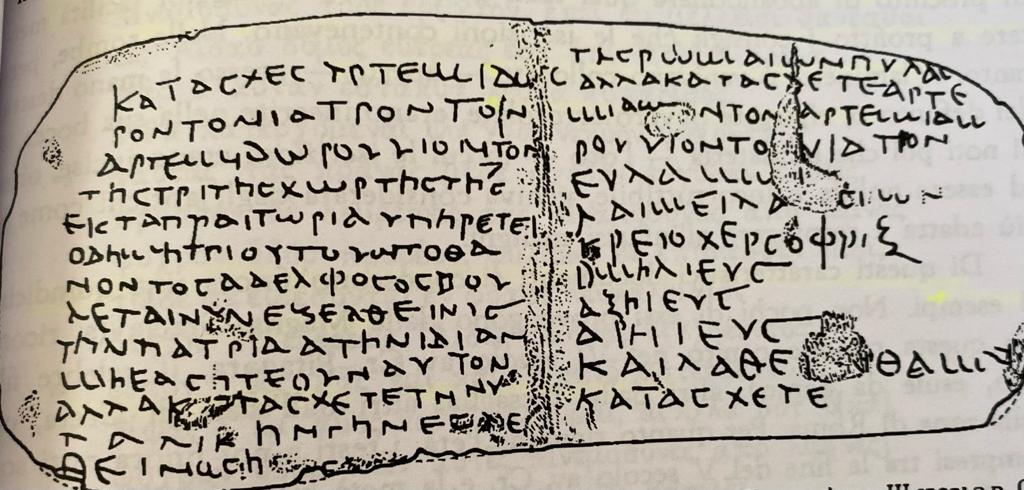 ΚΑΤΑCΧΕC ΥΡΤΕΜΙΔω
ΡΟΝΤΟΝΙΑΤΡΟΝΤΟΝ
ΑΡΤΕΜΗΔωΡΟΥΥΙΟΝΤΟΝ
ΤΗCΤΡΙΤΗCΧωΡΤΗCΤΗC
ΕΚΤΑΠΡΑΙΤωΡΙΑΥΠΗΡΕΤΕΙ
ΟΔΗΜΗΤΡΙΟΥΤΟΥΑΠΟΘΑ
ΝΟΝΤΟCΑΔΕΛΦΟCΟCΒΟΥ
ΛΕΤΑΙΝΥΝΕΞΕΛΘΕΙΝΙC
ΤΗΝΠΑΤΡΙΔΑΑΤΗΝΙΔΙΑΝ
ΜΗΕΑCΗΤΕΟΥΝΑΥΤΟΝ
ΑΛΛΑΚΑΤΑCΧΕΤΕΤΗΝ
ΤΑΝΙΚ
ΤΗCΡωΜΑΙωΝΠΥΛΑC
ΑΛΛΑΚΑΤΑCΧΕΤΕΑΡΤΕ
ΜΙΔω ΟΝΤΟΝ ΑΡΤΕΜΙΔω
ΡΟΥΥΙΟΝΤΟ ΙΑΤΡΟΝ
ΕΥΛΑΜω
ΛΑΜΕΙΛΑ ΕΙωΝ
ΡΕΙΟΧΕΡCΟΦΡΙΞ
ΟΜΗΛΙΕΥC
ΑΞΗΙΕΥC
ΑΡΗΙΕΥC
ΚΑΙΛΑΘΕ ΘΑΜ
ΚΑΤΑCΧΕΤΕ